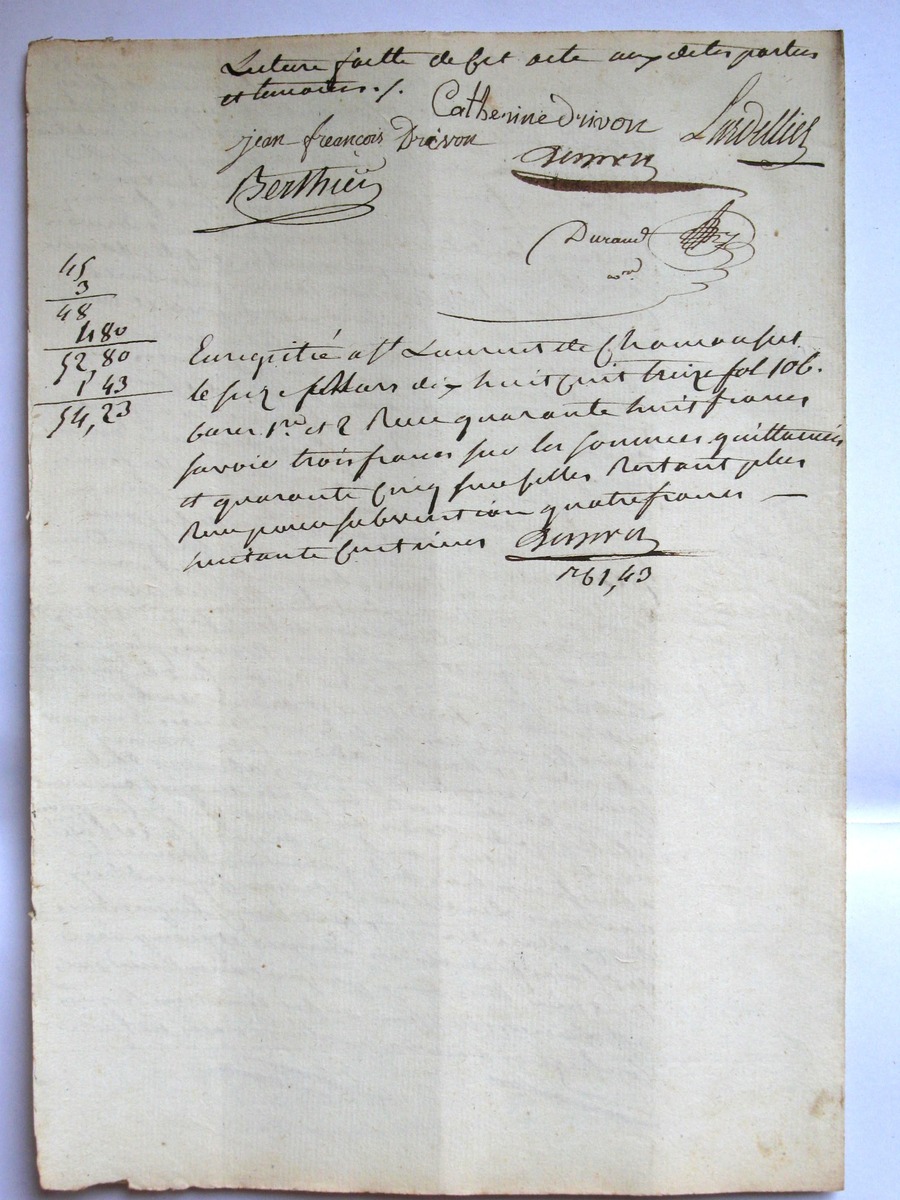 Lecture faitte de cet acte aux dites parties
et temoins ./.
Catherine Drivon
Lardellier
jean freançois Drivon
Berthier
Durand
nre
45
3
48
4 80
52,80
1 43
54,23
Enregistré a St Laurent de Chamousset
le seize Mars dix huit cent treize fol 106.
cases 1re et 2 Reçu quarante huit francs
savoir trois francs sur les sommes quittancées
et quarante cinq sur celles Restant plus
Reçu pour subvention quatre francs —
huitante centimes
761,43